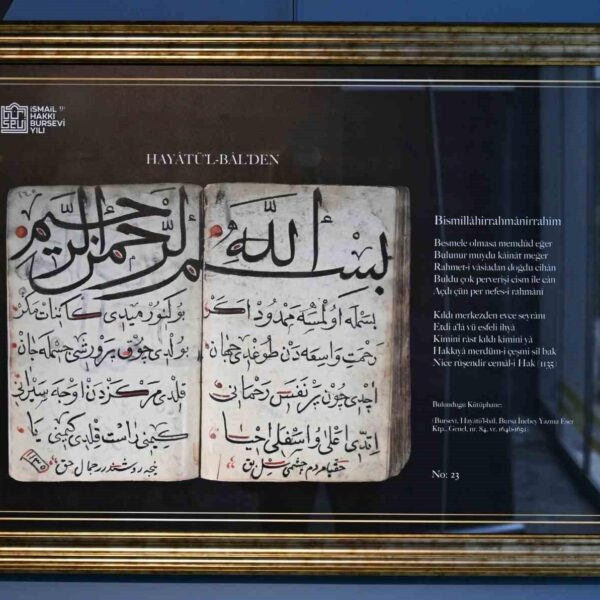 İSMAİL
HAKKI
BURSEVİ
YILI
HAYÂTÜ'L-BÂL'DEN
بسم الله الرحمن الرحيم
بسمله اولمسه ممدود اكر
بولنورميدى كائنات مكر
رحمت واسعه دن طوغدى جهان
بولدى چوق پرورشى جسمله جان
آچدى چون بر نفس رحمانى
قلدى مركزدن اوجه سيرانى
ايتدى اعلى و اسفلى احيا
كيمينى راست قلدى كمينى يا
حقيا مردم چشمى سل بق
نيجه روشندر جمال حق
١١٣٥
Bismillâhirrahmânirrahîm
Besmele olmasa memdûd eğer
Bulunur muydu kâinât meğer
Rahmet-i vâsiadan doğdu cihân
Buldu çok perverişi cism ile cân
Açdı çün per nefes-i rahmânî
Kıldı merkezden evce seyrânı
Etdi a'lâ vü esfeli ihyâ
Kimini râst kıldı kimini yâ
Hakkıyâ merdüm-i çeşmi sil bak
Nice rûşendir cemâl-i Hak (1135)
Bulunduğu Kütüphane:
(Bursevî, Hayâtü'l-bâl, Bursa İnebey Yazma Eser
Ktp., Genel, nr. 84, vr. 164b-165a).
No: 23